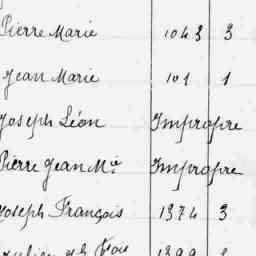 Pierre Marie 1043 3
Jean Marie 101 1
Joseph Léon Impropre
Pierre Jean Mie Impropre
Joseph François 1374 3